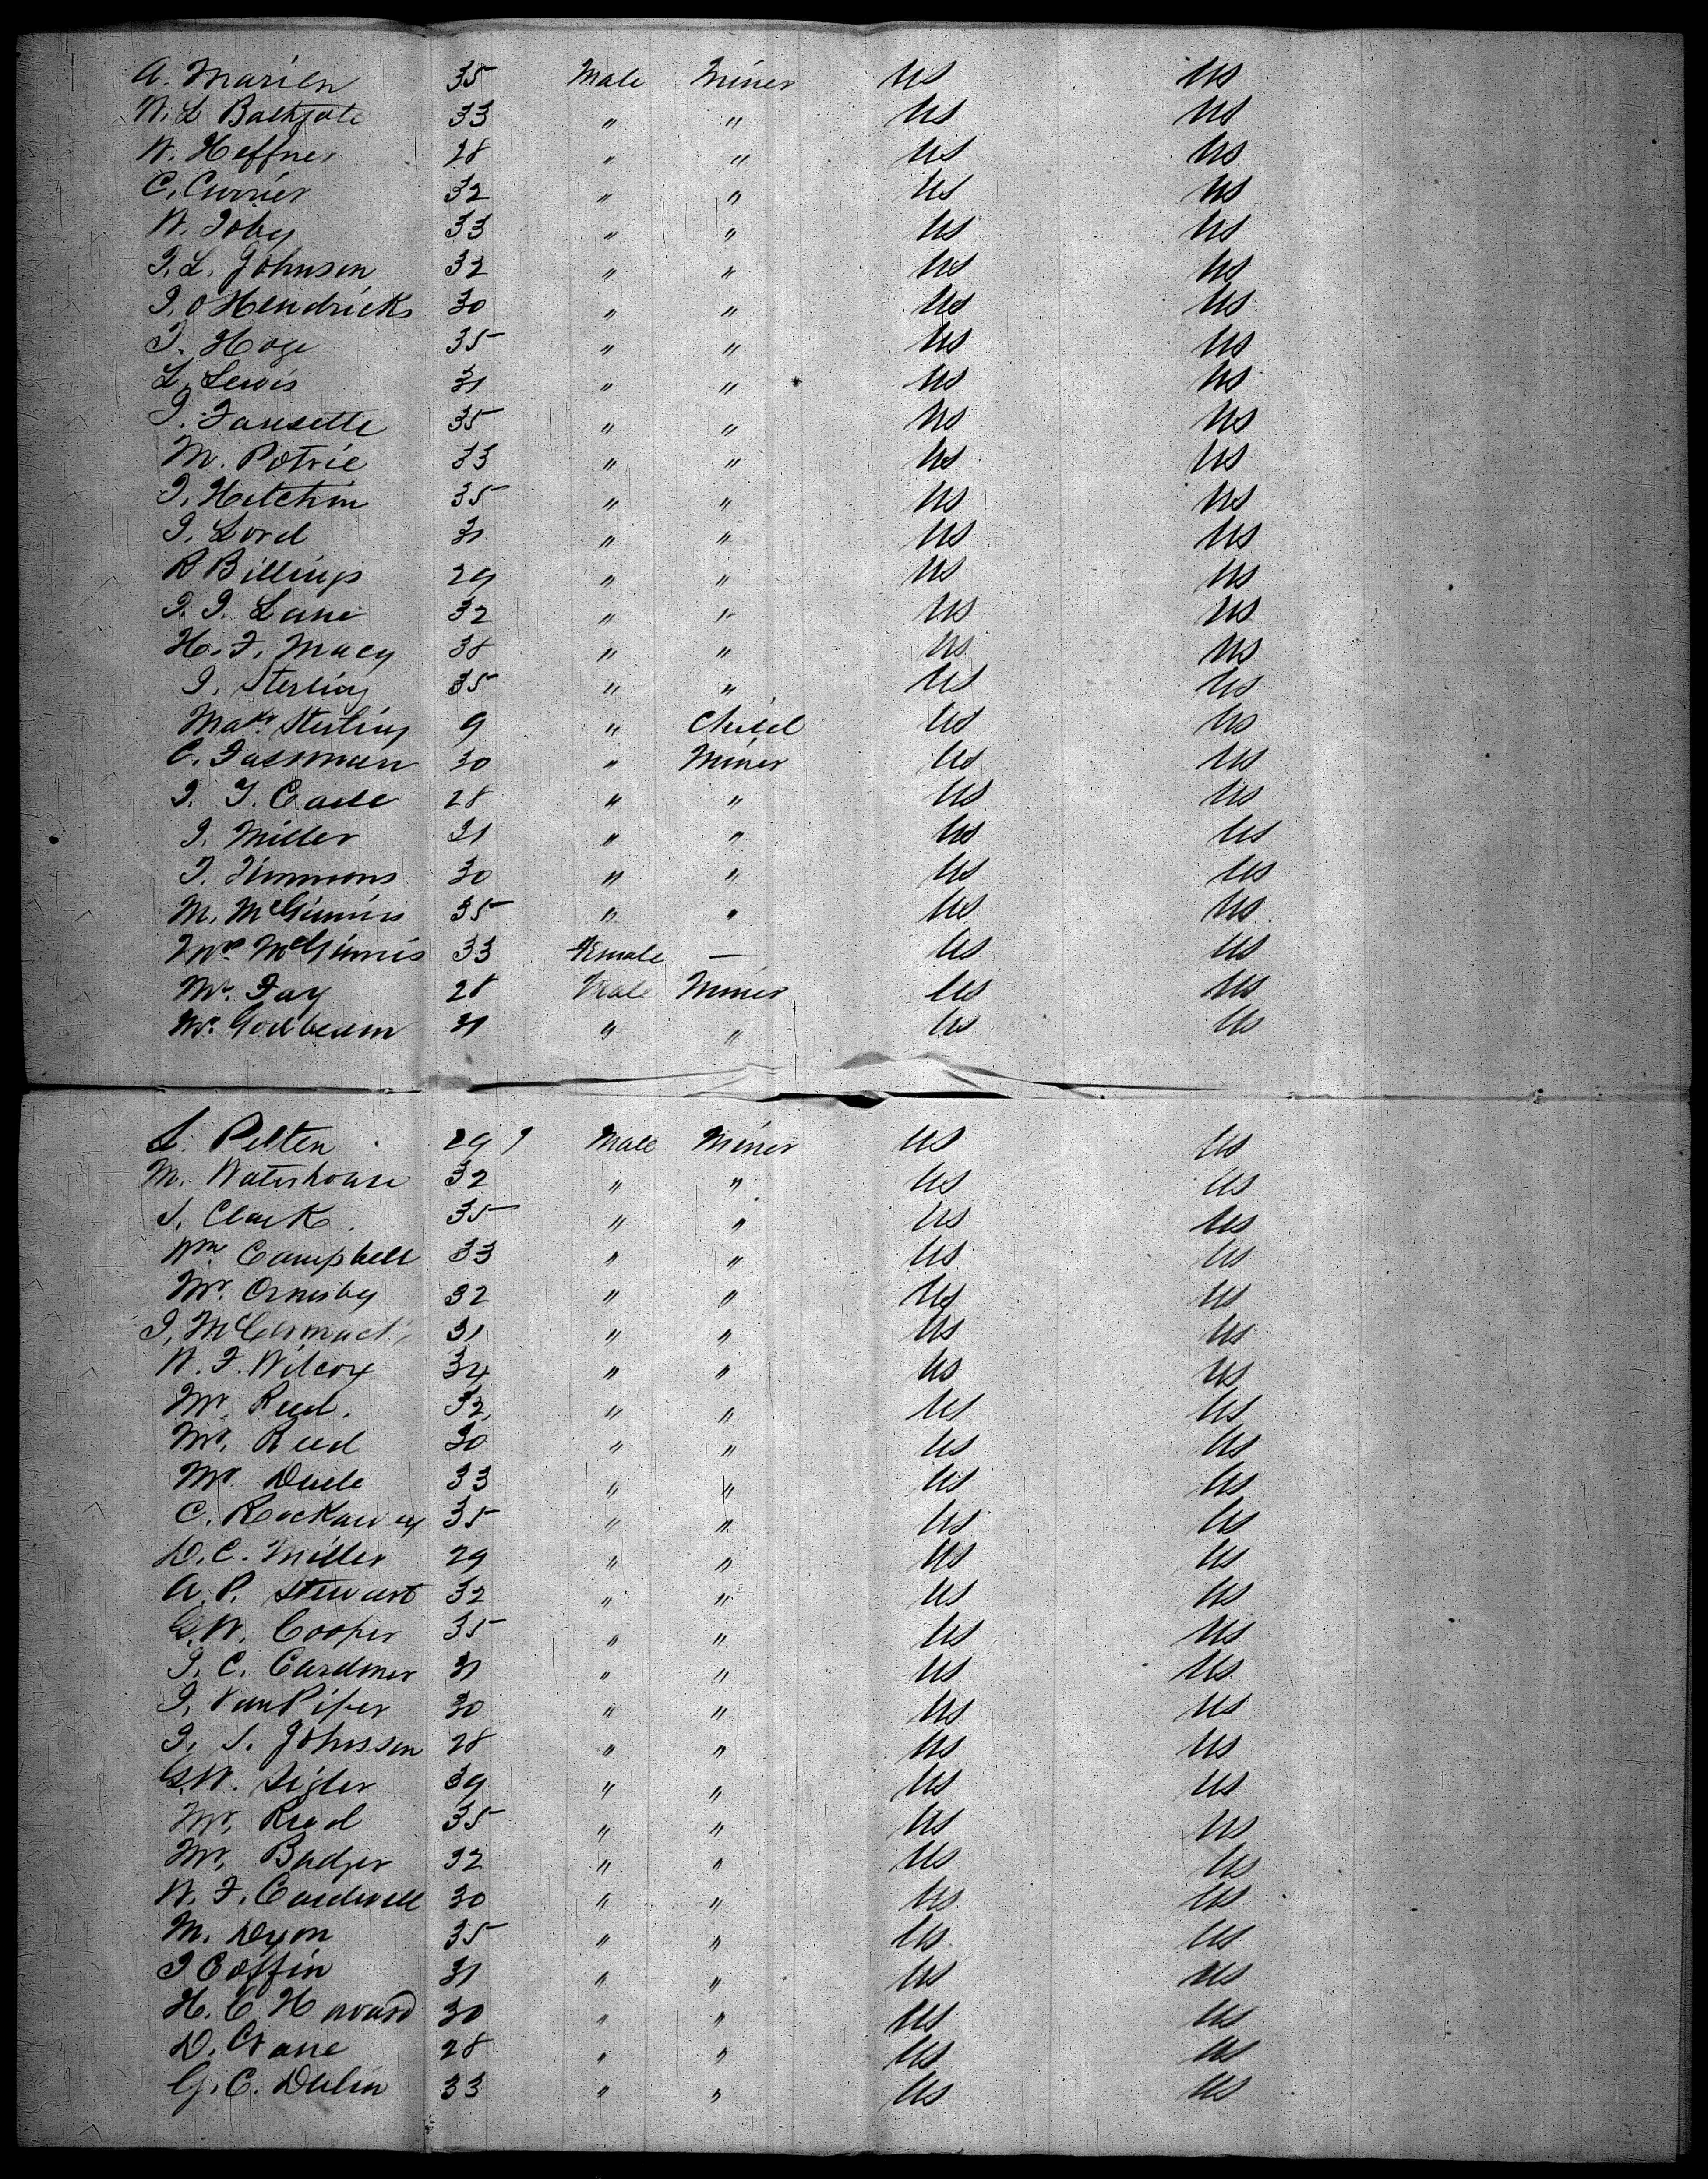 A. Marien 35 Male Miner US US
W. L Bathgate 33 " " US US
W. Heffner 28 " " US US
C. Currier 32 " " US US
W. Toby 33 " " US US
J. L. Johnson 32 " " US US
J. O Hendricks 30 " " US US
J. Hoge 35 " " US US
L. Lewis 31 " " US US
J. Fausette 35 " " US US
M. Potrie 33 " " US US
J. Hutchin 35 " " US US
J. Lord 31 " " US US
B Billings 29 " " US US
J. J. Lane 32 " " US US
H. F. Macy 38 " " US US
J. Sterling 35 " " US US
Mas. Sterling 9 " Child US US
C. Fassman 30 " Miner US US
J. T. Cade 28 " " US US
J. Miller 31 " " US US
T. Timmons 30 " " US US
M. McGinnis 35 " " US US
Mrs McGinnis 33 Female — US US
Mr. Fay 28 Male Miner US US
Mr. 31 " " US US
L. Pelten 29 Male Miner US US
M. Waterhouse 32 " " US US
S. Clark 35 " " US US
Wm Campbell 33 " " US US
Mr. Ormsby 32 " " US US
J. McCormack 31 " " US US
W. F. Wilcox 34 " " US US
Mr. Reed. 32 " " US US
Mr. Reed 30 " " US US
Mr Dude 33 " " US US
C. Rockaway 35 " " US US
D. C. Miller 29 " " US US
A. P. Stewart 32 " " US US
G. W. Cooper 35 " " US US
J. C. Cardmer 31 " " US US
J. VanPifer 30 " " US US
J. S. Johnson 28 " " US US
G. W. Sigler 39 " " US US
Mr. Reed 35 " " US US
Mr. Badger 32 " " US US
W. F. Cardwell 30 " " US US
M. Dyon 35 " " US US
J Coffin 31 " " US US
H. C. Havard 30 " " US US
D. Crane 28 " " US US
G. C. Dulin 33 " " US US